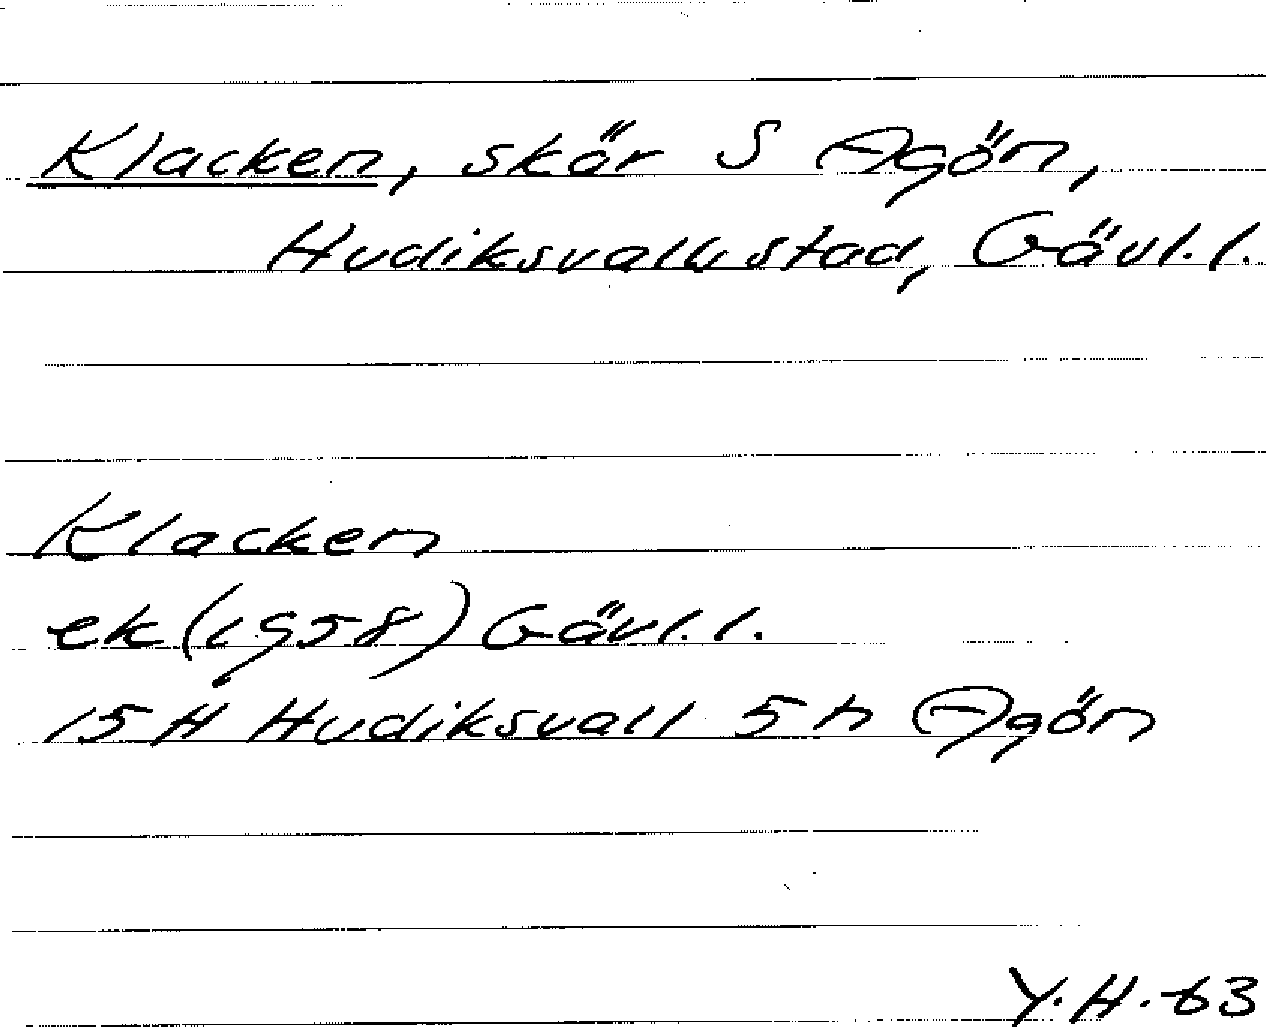 Klacken, skär S Agön,
Hudiksvalls stad, Gävl.l.
Klacken
ek (1958) Gävl.l.
15 H Hudiksvall 5 h Agön
Y.H.-63